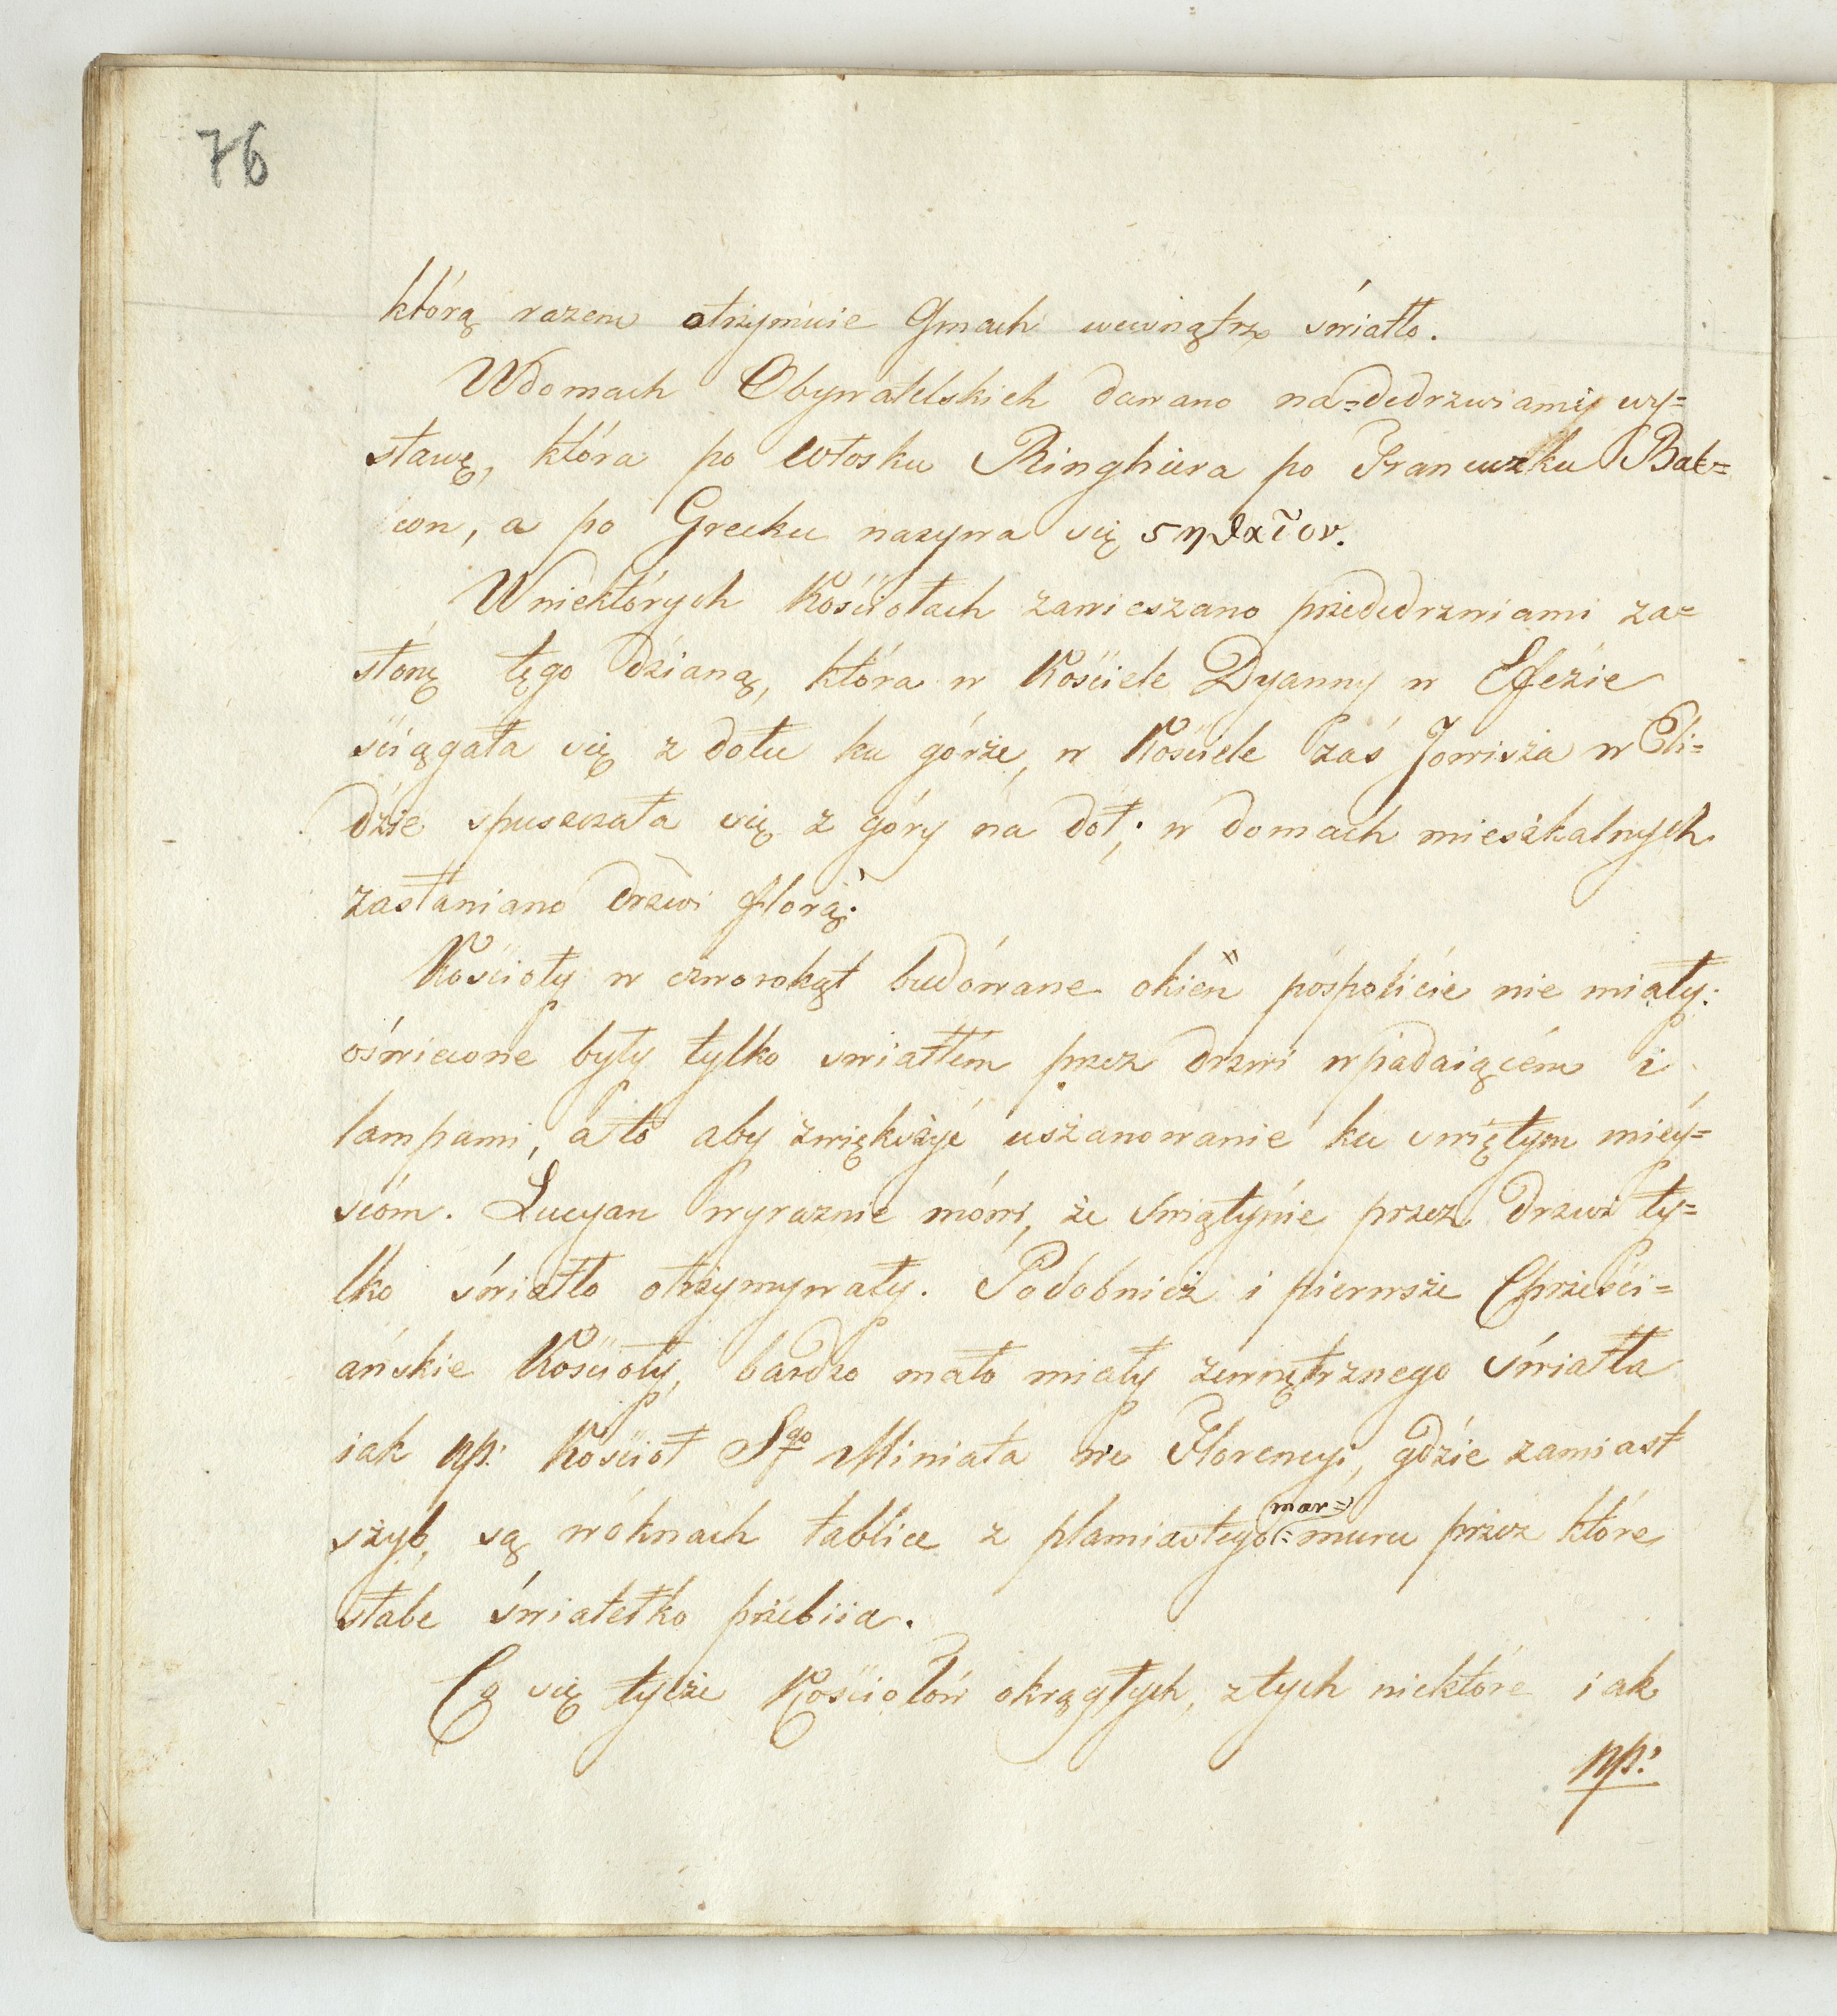 76
którą razem otrzymuie Gmach wewnątrz światło.
Wdomach Obywatelskich dawano na=dedrzwiamy wy=
stawę, która po włosku Ringhiera po Francuzku Bal=
con, a po Grecku nazywa się ςηθατον.
Wniektórych Kościołach zawieszano przededrzwiami za=
słonę tęgo dzianą, która w Kościele Dyanny w Effezie
ściągała się z dołu ku górze, w Kościele zaś Jowisza w Eli=
dzie spuszczała się z góry na dół; w domach mieszkalnych
zasłaniano drzwi florą.
Kościoły w czworokąt budowane okien pospolicie nie miały:
oświecone były tylko swiatłem przez drzwi wpadaiącém i
lampami, a to aby zwiększyć uszanowanie ku swiętym miéy=
scóm. Lucyan wyraznie mówi, że swiątynie przez drzwi ty=
lko światło otrzymywały. Podobnież i pierwsze Chrześci=
ańskie Kościoły, bardzo mało miały zewnętrznego światła
iak np: Kościoł Sgo Miniata we Florencyi, gdzie zamiast
szyb, są wóknach tablice z plamiastego mar=muru przez które
słabe światełko przebiia.
Co się tycze Kościołów okrągłych, ztych niektóre iak
np: